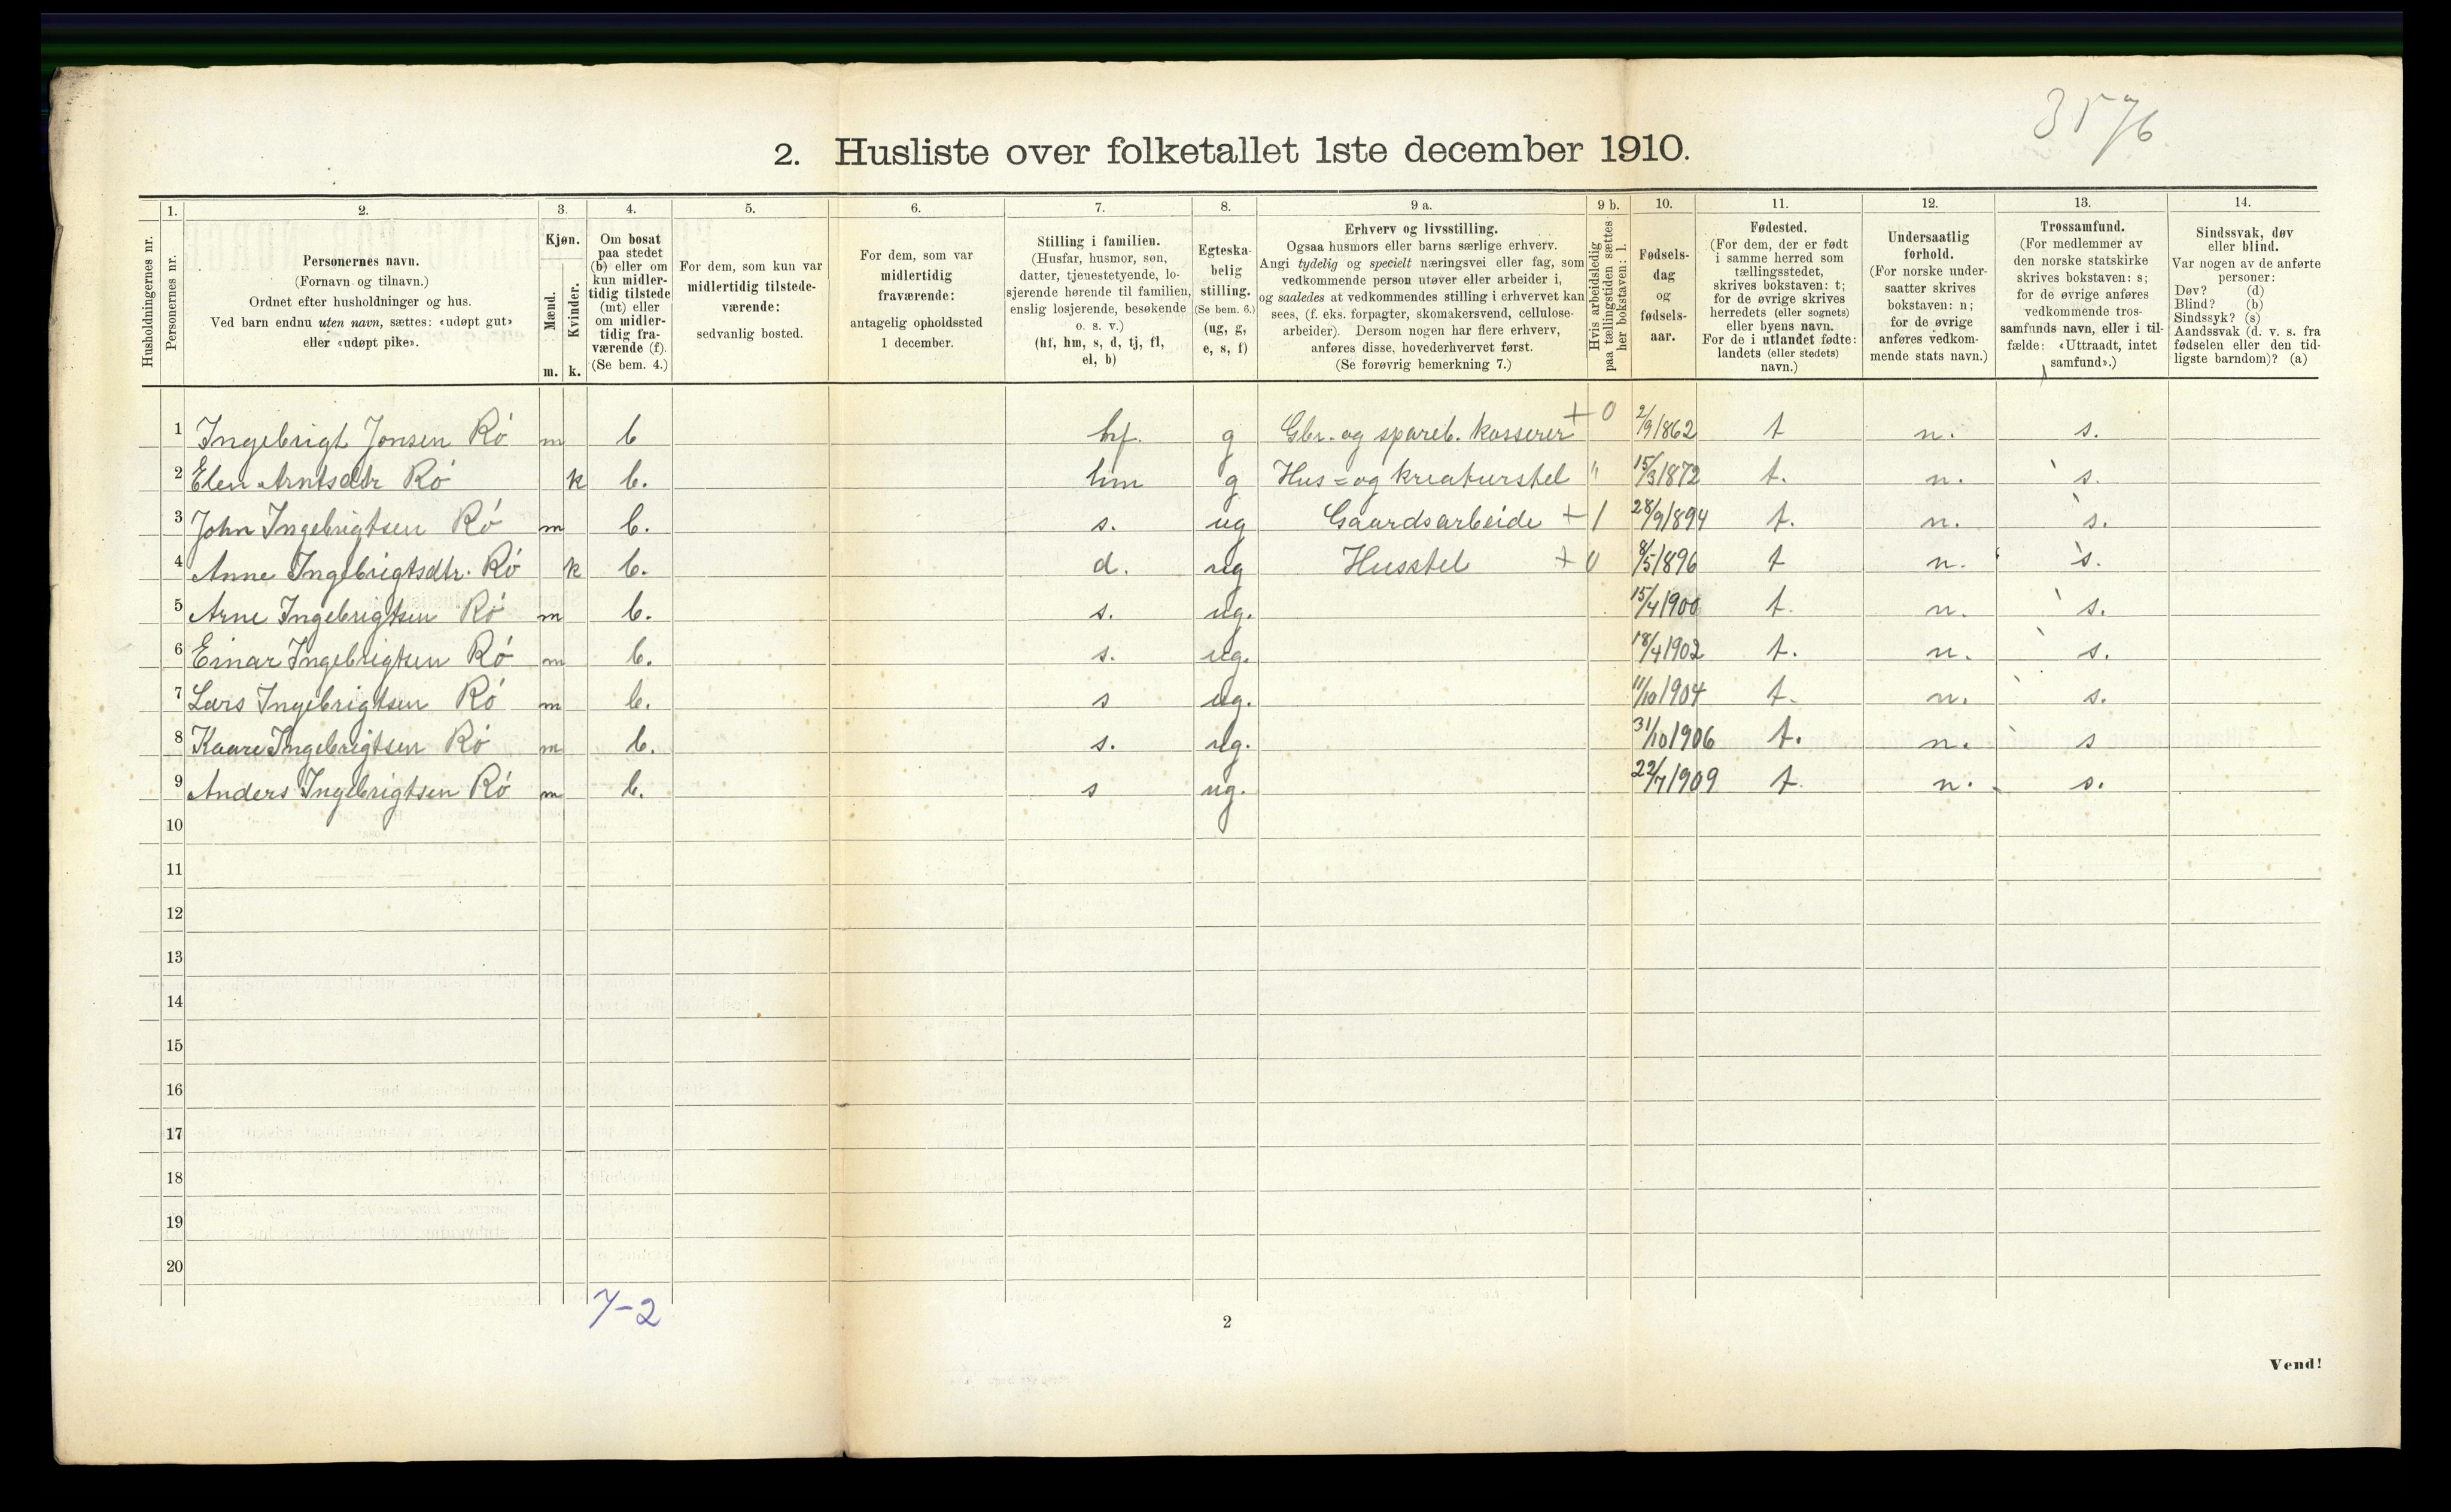 3576
2. Husliste over folketallet 1ste december 1910.
Husholdningernes nr.
1.
Personernes nr.
2.
Personernes navn.
(Fornavn og tilnavn.)
Ordnet efter husholdninger og hus.
Ved barn endnu uten navn, sættes: «udøpt gut»
eller «udøpt pike».
3.
Kjøn.
Mænd.
Kvinder.
m. k.
4.
Om bosat
paa stedet
(b) eller om
kun midler-
tidig tilstede
(mt) eller
om midler-
tidig fra-
værende (f).
(Se bem. 4.)
5.
For dem, som kun var
midlertidig tilstede-
værende:
sedvanlig bosted.
6.
For dem, som var
midlertidig
fraværende:
antagelig opholdssted
1 december.
7.
Stilling i familien.
(Husfar, husmor, søn,
datter, tjenestetyende, lo-
sjerende hørende til familien,
enslig losjerende, besøkende
o. s. v.)
(hf, hm, s, d, tj, fl,
el, b)
8.
Egteska-
belig
stilling.
(Se bem. 6.)
(ug, g,
e, s, f)
9 a.
Erhverv og livsstilling.
Ogsaa husmors eller barns særlige erhverv.
Angi tydelig og specielt næringsvei eller fag, som
vedkommende person utøver eller arbeider i,
og saaledes at vedkommendes stilling i erhvervet kan
sees, (f. eks. forpagter, skomakersvend, cellulose-
arbeider). Dersom nogen har flere erhverv,
anføres disse, hovederhvervet først.
(Se forøvrig bemerkning 7.)
9 b.
Hvis arbeidsledig
paa tællingstiden sættes
her bokstaven: l.
10.
Fødsels-
dag
og
fødsels-
aar.
11.
Fødested.
(For dem, der er født
i samme herred som
tællingsstedet,
skrives bokstaven: t;
for de øvrige skrives
herredets (eller sognets)
eller byens navn.
For de i utlandet fødte:
landets (eller stedets)
navn.)
12.
Undersaatlig
forhold.
(For norske under-
saatter skrives
bokstaven: n;
for de øvrige
anføres vedkom-
mende stats navn.)
13.
Trossamfund.
(For medlemmer av
den norske statskirke
skrives bokstaven: s;
for de øvrige anføres
vedkommende tros-
samfunds navn, eller i til-
fælde: «Uttraadt, intet
samfund».)
14.
Sindssvak, døv
eller blind.
Var nogen av de anførte
personer:
Døv? (d)
Blind? (b)
Sindssyk? (s)
Aandssvak (d. v. s. fra
fødselen eller den tid-
ligste barndom)? (a)
1 Ingebrigt Jonsen Rö m b hf. g Gbr. og spareb. kasserer + 0 2/9 1862 t n. s.
2 Elen Arntsdtr Rö k b. hm g Hus = og kreaturstel " 15/3 1872 t. n. s.
3 John Ingebrigtsen Rö m b. s. ug Gaardsarbeide + 1 28/9 1894 t. n. s.
4 Anne Ingebrigtsdtr. Rö k b. d. ug Husstel + 0 8/5 1896 t n. s.
5 Arne Ingebrigtsen Rö m b. s. ug. 15/4 1900 t. n. s.
6 Einar Ingebrigtsen Rö m b. s. ug. 18/4 1902 t. n. s.
7 Lars Ingebrigtsen Rö m b. s ug. 11/10 1904 t. n. s.
8 Kaare Ingebrigtsen Rö m b. s. ug. 31/10 1906 t. n. s
9 Anders Ingebrigtsen Rö m b. s ug. 22/7 1909 t. n. s.
10
11
12
13
14
15
16
17
18
19
20
7-2
2
Vend!